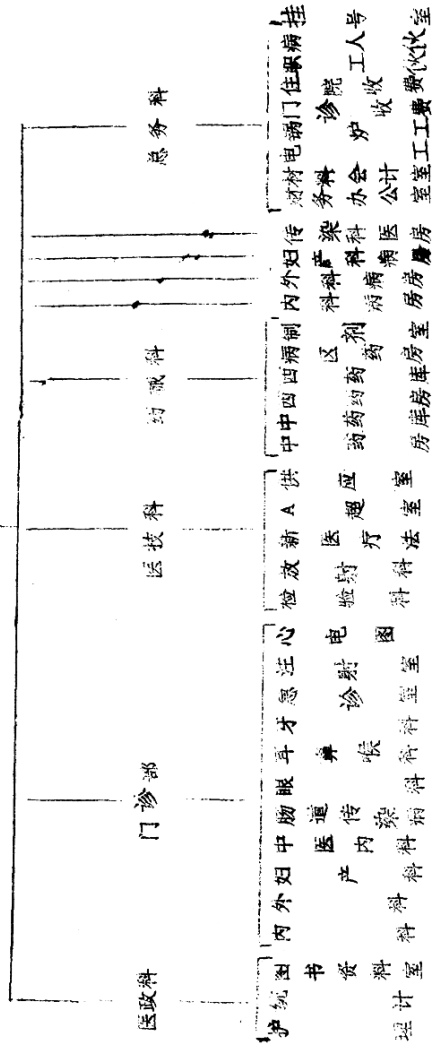 医政科
门诊部
医技科
药械科
总务科
护理
统计
图书资料室
内科
外科
妇产科
中医内科
肠道传染病科
眼科
耳鼻喉科
牙科
急诊室
注射室
心电图
检验科
放射科
新医疗法室
A超室
供应室
中药房
中药库
西药房
西药库
病区药房
制剂室
内科病房
外科病房
妇产科病房
传染科病房
财务办公室
材料会计室
电工
锅炉工
门诊收费
住院收费
职工伙
病人伙
挂号室